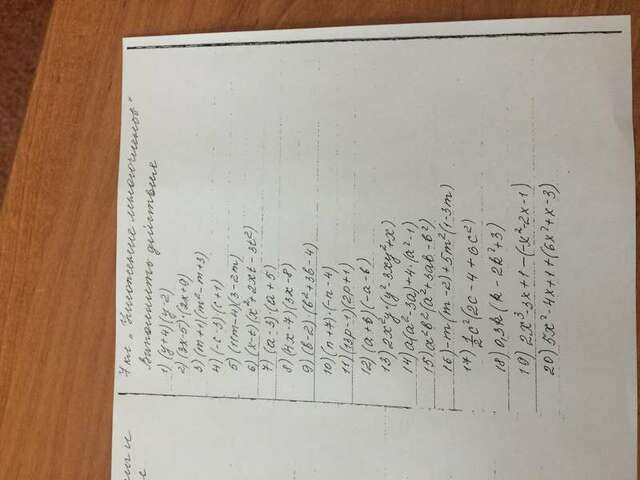 7 кл „Умножение многочленов"
Выполнить действия
1) (y+4)(y-2)
2) (3x-5)·(2x+9)
3) (m+1)(m²-m+3)
4) (-c-3)(c+1)
5) (11m-4)(3-2m)
6) (x-t)(x²+2xt-3t²)
7) (a-3)·(a+5)
8) (4x-7)(3x-8)
9) (b-2)·(b²+3b-4)
10) (n+7)·(-n-4)
11) (13p-1)(2p+1)
12) (a+b)(-a-b)
13) 2x²y·(y²-3xy²+x)
14) a(a²-3a)+4·(a²-1)
15) a²b²(a²+3ab-b²)
16) -m(m-2)+5m²(1-3m)
17) ½c²(2c-4+6c²)
18) 0,3k(k-2k²+3)
19) 2x³-3x+1-(-x²-2x-1)
20) 5x²-4x+1+(6x²+x-3)